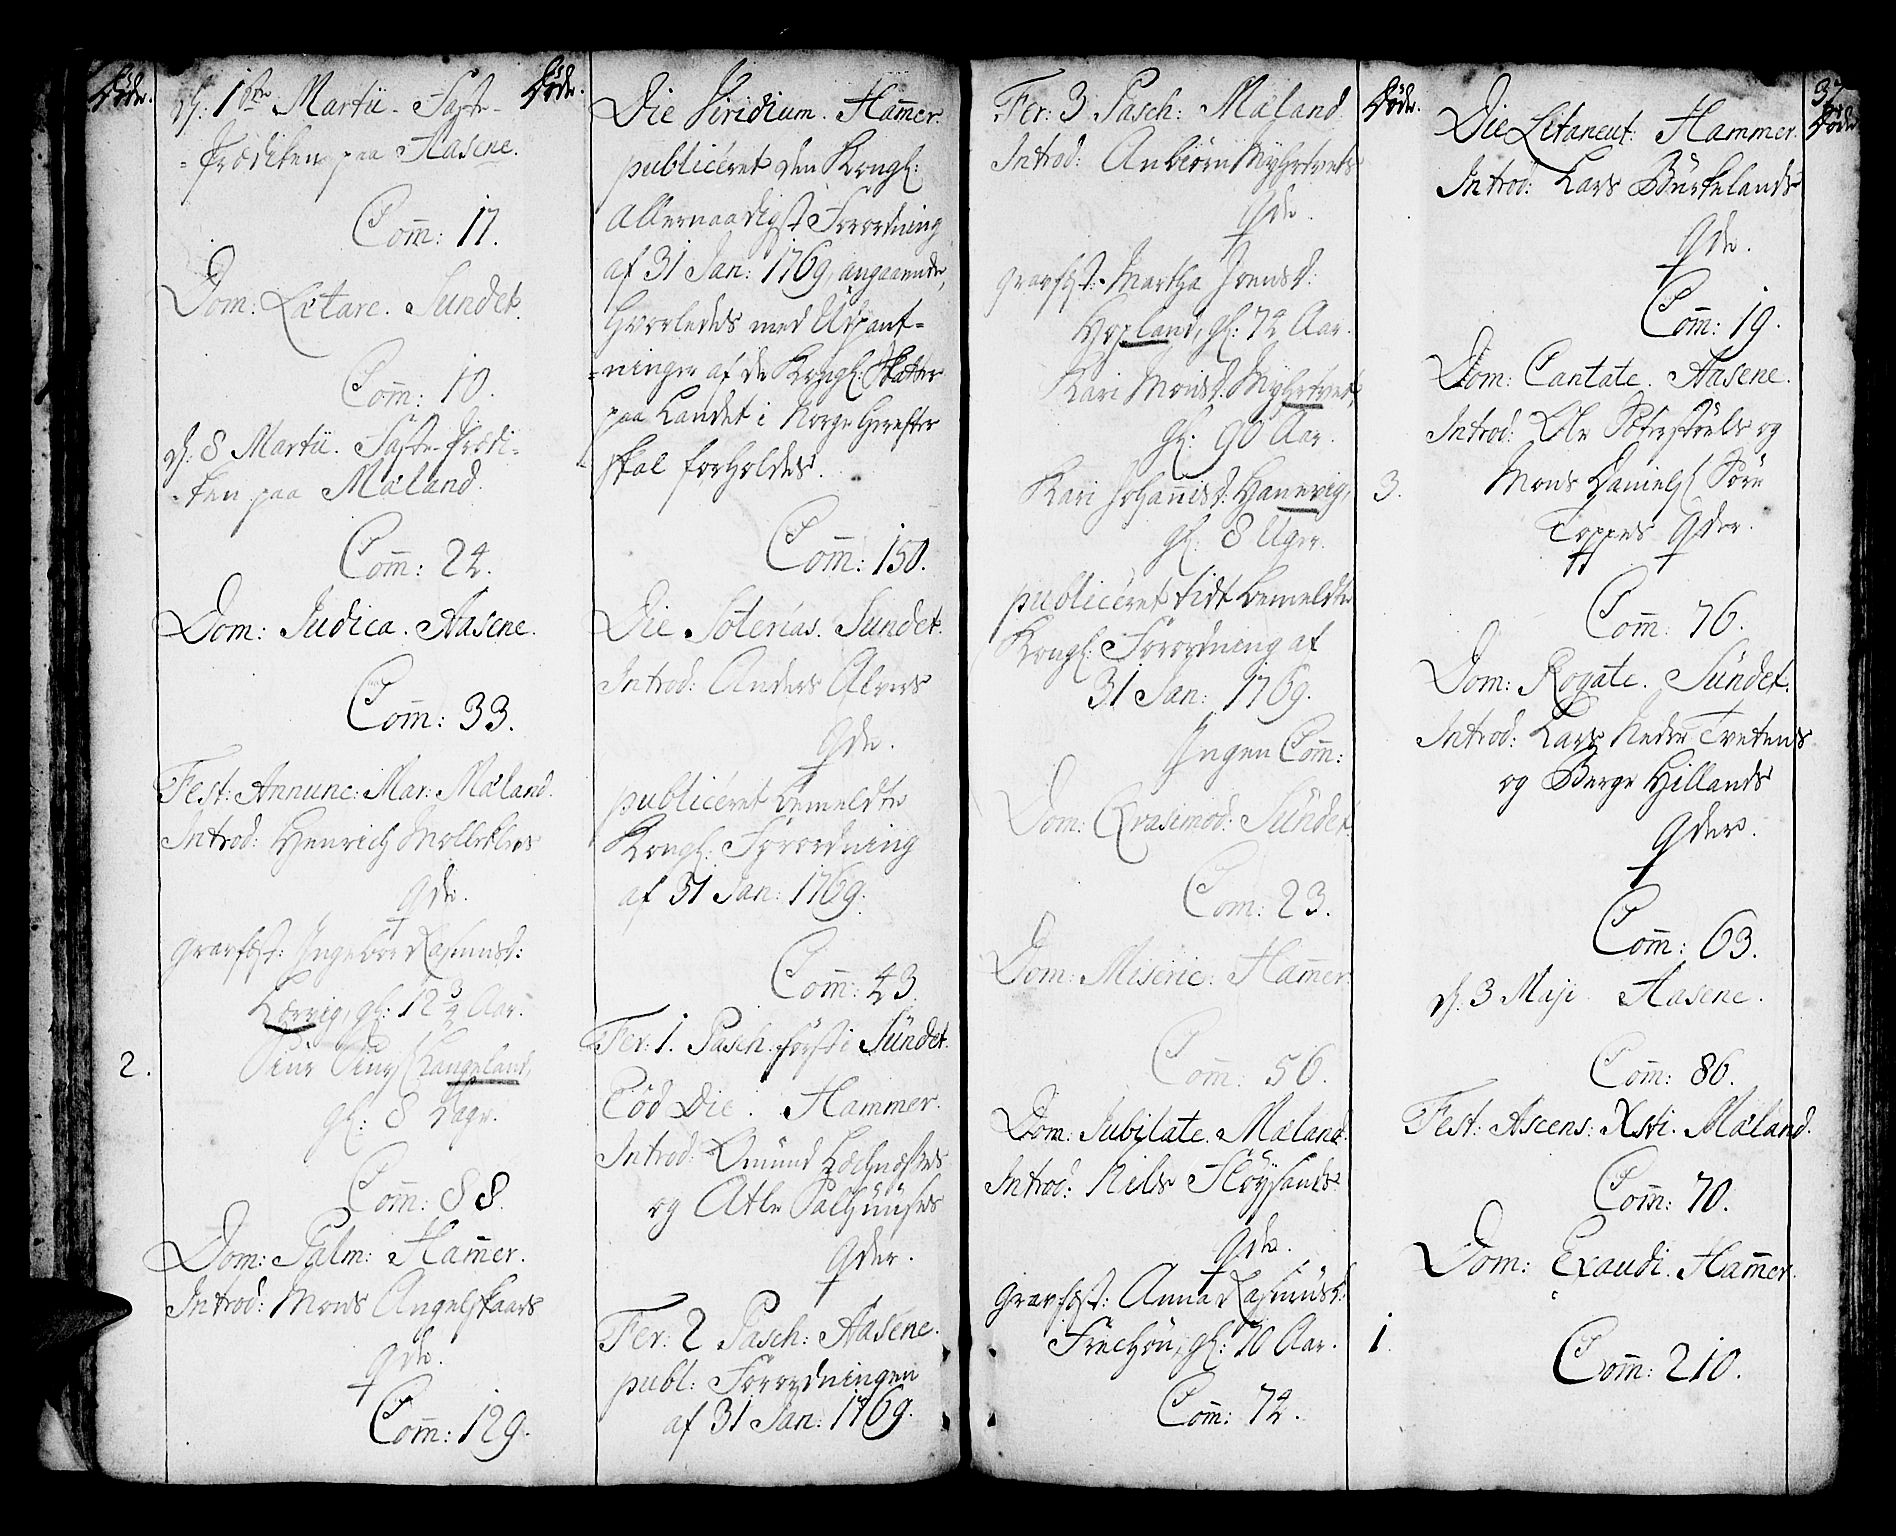 Döde.
d. 1ste Martii. Faste-
-Prædiken paa Aasene.
Com̄: 17.
Dom: Lætare. Sundet.
Com̄: 10.
d. 8 Martii. Faste-Prædi-
-ken paa Mæland.
Com̄: 24.
Dom: Judica. Aasene.
Com̄: 33.
Fest: Annunc: Mar: Mæland.
Introd: Henrich
Qde.
Gravfæst: Ingebor Rasmusd:
Lervig, gl: 12 3/4 Aar.
Langeland,
2.
gl: 8 Dage.
Com̄: 88.
Dom: Palm: Ham̄er.
Introd: Mons Angelskaars
Qde.
Com̄: 129.
Döde.
Die Viridium. Ham̄er.
publiceret den Kongl:
Allernaadigst Forordning
af 31 Jan: 1769, angaaende,
Hvorledes med Udpant-
-ningen af de Kongl: Skatter
paa Landet i Norge herefter
skal forholdes.
Com̄: 150.
Die Soterias. Sundet.
Introd: Anders Alvers
Qde.
publiceret bemeldte
Kongl: Forordning
af 31 Jan: 1769.
Com̄: 43.
Fer: 1. Pasch: først i Sündet.
Eod Die. Hammer.
Introd: Omund
og Atle
Qder.
Fer: 2 Pasch: Aasene.
publ: Forordningen
af 31 Jan: 1769.
Fer: 3 Pasch: Mæland.
Introd: Anbiørn Myhrtvets
Qde.
Gravfæst: Martha Joensd:
Hopland, gl: 72 Aar.
Kari Monsd: Myhrtvet,
gl: 90 Aar.
Kari Johannisd: Hanevig,
gl: 8 Uger.
publiceret tidt bemeldte
Kongl: Forordning af
31 Jan: 1769.
Ingen Com̄:
Dom: Qvasimod: Sündet
Com: 23.
Dom: Miseric: Ham̄er.
Com̄: 56.
Dom: Jubilate. Mæland.
Introd: Nils Fløysands
Qde.
Gravfæst: Anna Rasmusd:
Fuehøu, gl: 70 Aar.
Com̄: 72.
Döde.
3.
1.
Die Litaneut: Hammer.
Introd: Lars Bürkelands
Qde.
Com̄: 19.
Dom: Cantate. Aasene.
Introd: Ole og
Mons Daniels. Søre
Toppes Qder.
Com̄ 76.
Dom: Rogate. Sündet.
Introd: Lars Nedre Tvetens
og Berge Hillands
Qder.
Com̄: 63.
d. 3 Maji Aasene.
Com̄: 86.
Fest: Ascens: Xsti. Mæland.
Com̄: 70.
Dom: Exaudi. Ham̄er.
Com̄: 210.
37
Döde